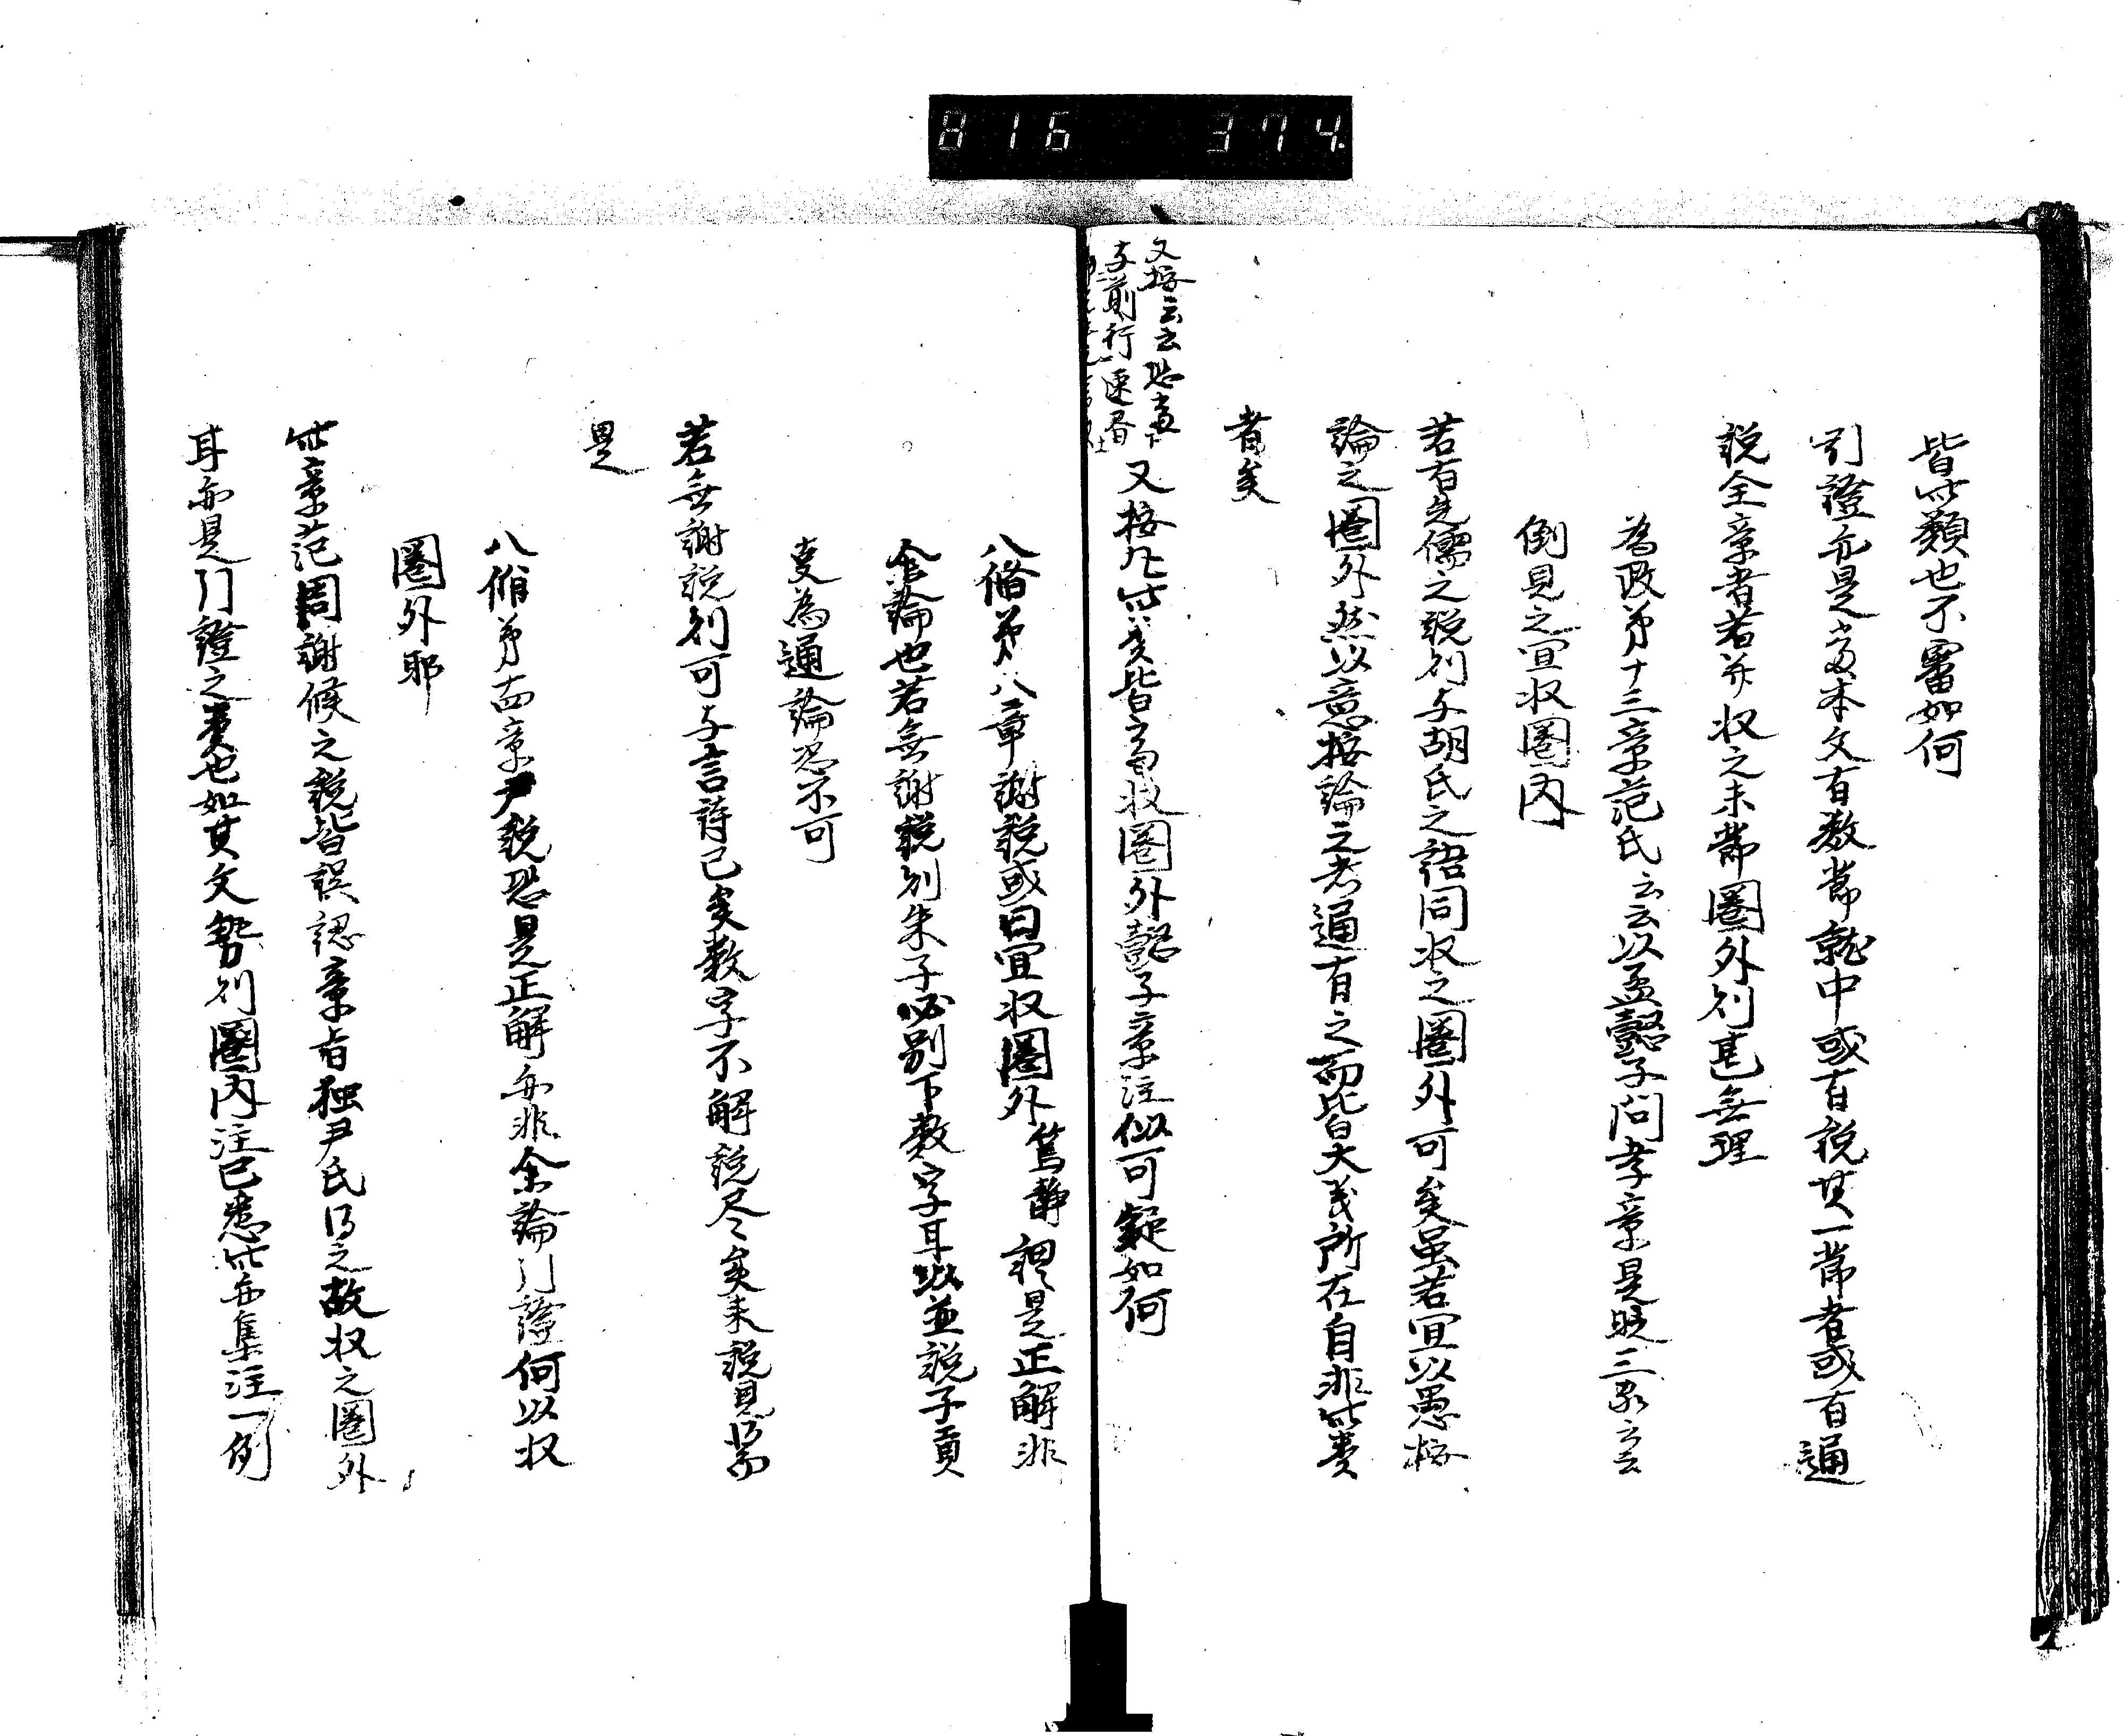 816 374
皆此類也不審如何
引證亦是當本文有數節就中或有說其一節者或有通
說全章者若并收之末節圈外則甚無理
為政第十三章范氏云云以孟懿子問孝章是晚三家云云
倒見之宜收圈內
若有先儒之說則与胡氏之語同收之圈外可矣虽若宜以愚按
論之圈外然以意按論之者通有之而皆大義所在自非此类
者矣
又按云云恐當下
与前行一連看
又按凡此类皆當收圈外懿子章注似可疑如何
八佾第八章謝說或曰宜收圈外篤静謂是正解非
余論也若無謝說則朱子必別下數字耳以並說子貢
夏為通論恐不可
若無謝說則可与言詩已矣數字不解說尽矣未說見得為
是
八佾第十四章尹說恐是正解亦非余論引證何以収
圈外耶
此章范周謝候之說皆誤認章旨独尹氏得之故收之圈外
耳亦是引證之类也如其文勢則圈內注已悉此亦集注一例